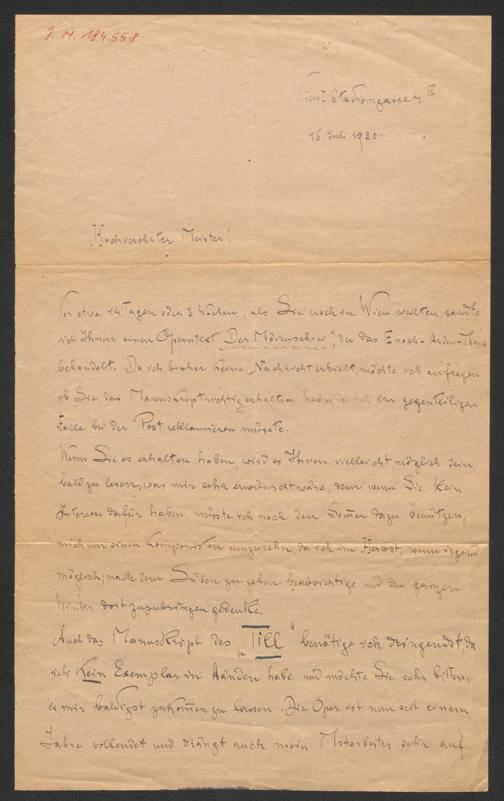 J. N. 184.558
Stadiongasse 4 IV
16. Juli 1920.
Hochverehrter Meister!
Vor etwa 14 Tagen oder 3 Wochen, als Sie noch in Wien weilten sandte
ich Ihnen einen Operntext „Der Mövenschrei“, der das Enoch-Arden-Thema
behandelt. Da ich bisher keine Nachricht erhielt, möchte ich anfragen
ob Sie das Manuskript richtig erhalten haben, da ich im gegenteiligen
Falle bei der Post reklamieren müsste.
Wenn Sie es erhalten haben, wird es Ihnen vielleicht möglich sein
bald zu lesen, was mir sehr erwünscht wäre, denn wenn Sie kein
Interesse dafür haben müsste ich noch den Som̅er dazu benützen,
mich um einen Komponisten umzusehn, da ich im Herbst, wenn irgend
möglich, nach dem Süden zu gehen beabsichtige und den ganzen
Winter dort zuzubringen gedenke.
Auch das Manuskript des „Till“ benötige ich dringendst, da
ich kein Exemplar in Händen habe und möchte Sie sehr bitten,
es mir baldigst zukom̅en zu lassen. Die Oper ist nun seit einem
Jahre vollendet und drängt auch mein Mitarbeiter sehr auf